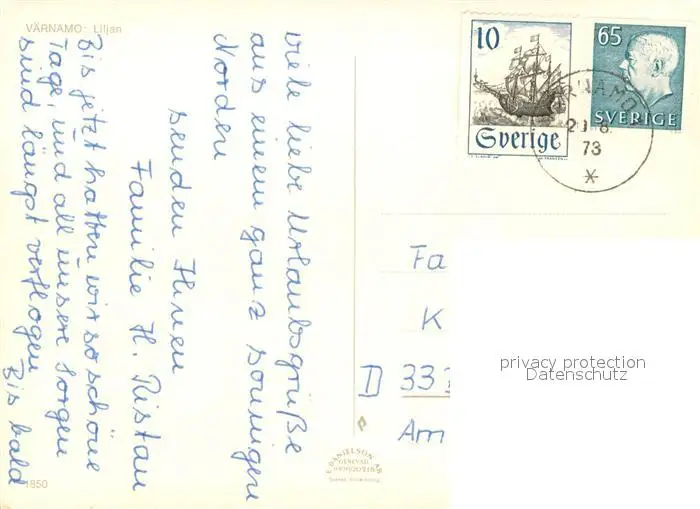 VÄRNAMO: Liljan
viele liebe Urlaubsgrüße
aus einem ganz sonnigen
Norden
senden Ihnen
Familie H. Ristau
Bis jetzt hatten wir so schöne
Tage, und all unsere Sorgen
sind längst verflogen
Bis bald
1850
10
Sverige
65
SVERIGE
VÄRNAMO
73
Fa
K
D 331
Am
privacy protection
Datenschutz
E. DANIELSON AB
GENEVAD